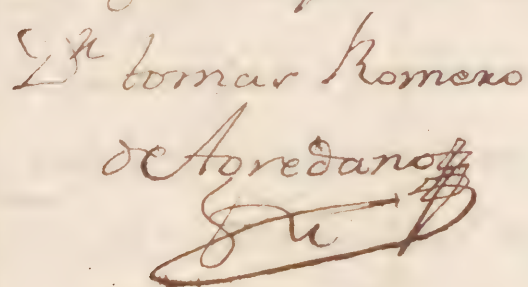 Dn tomas Romero
de Agredano